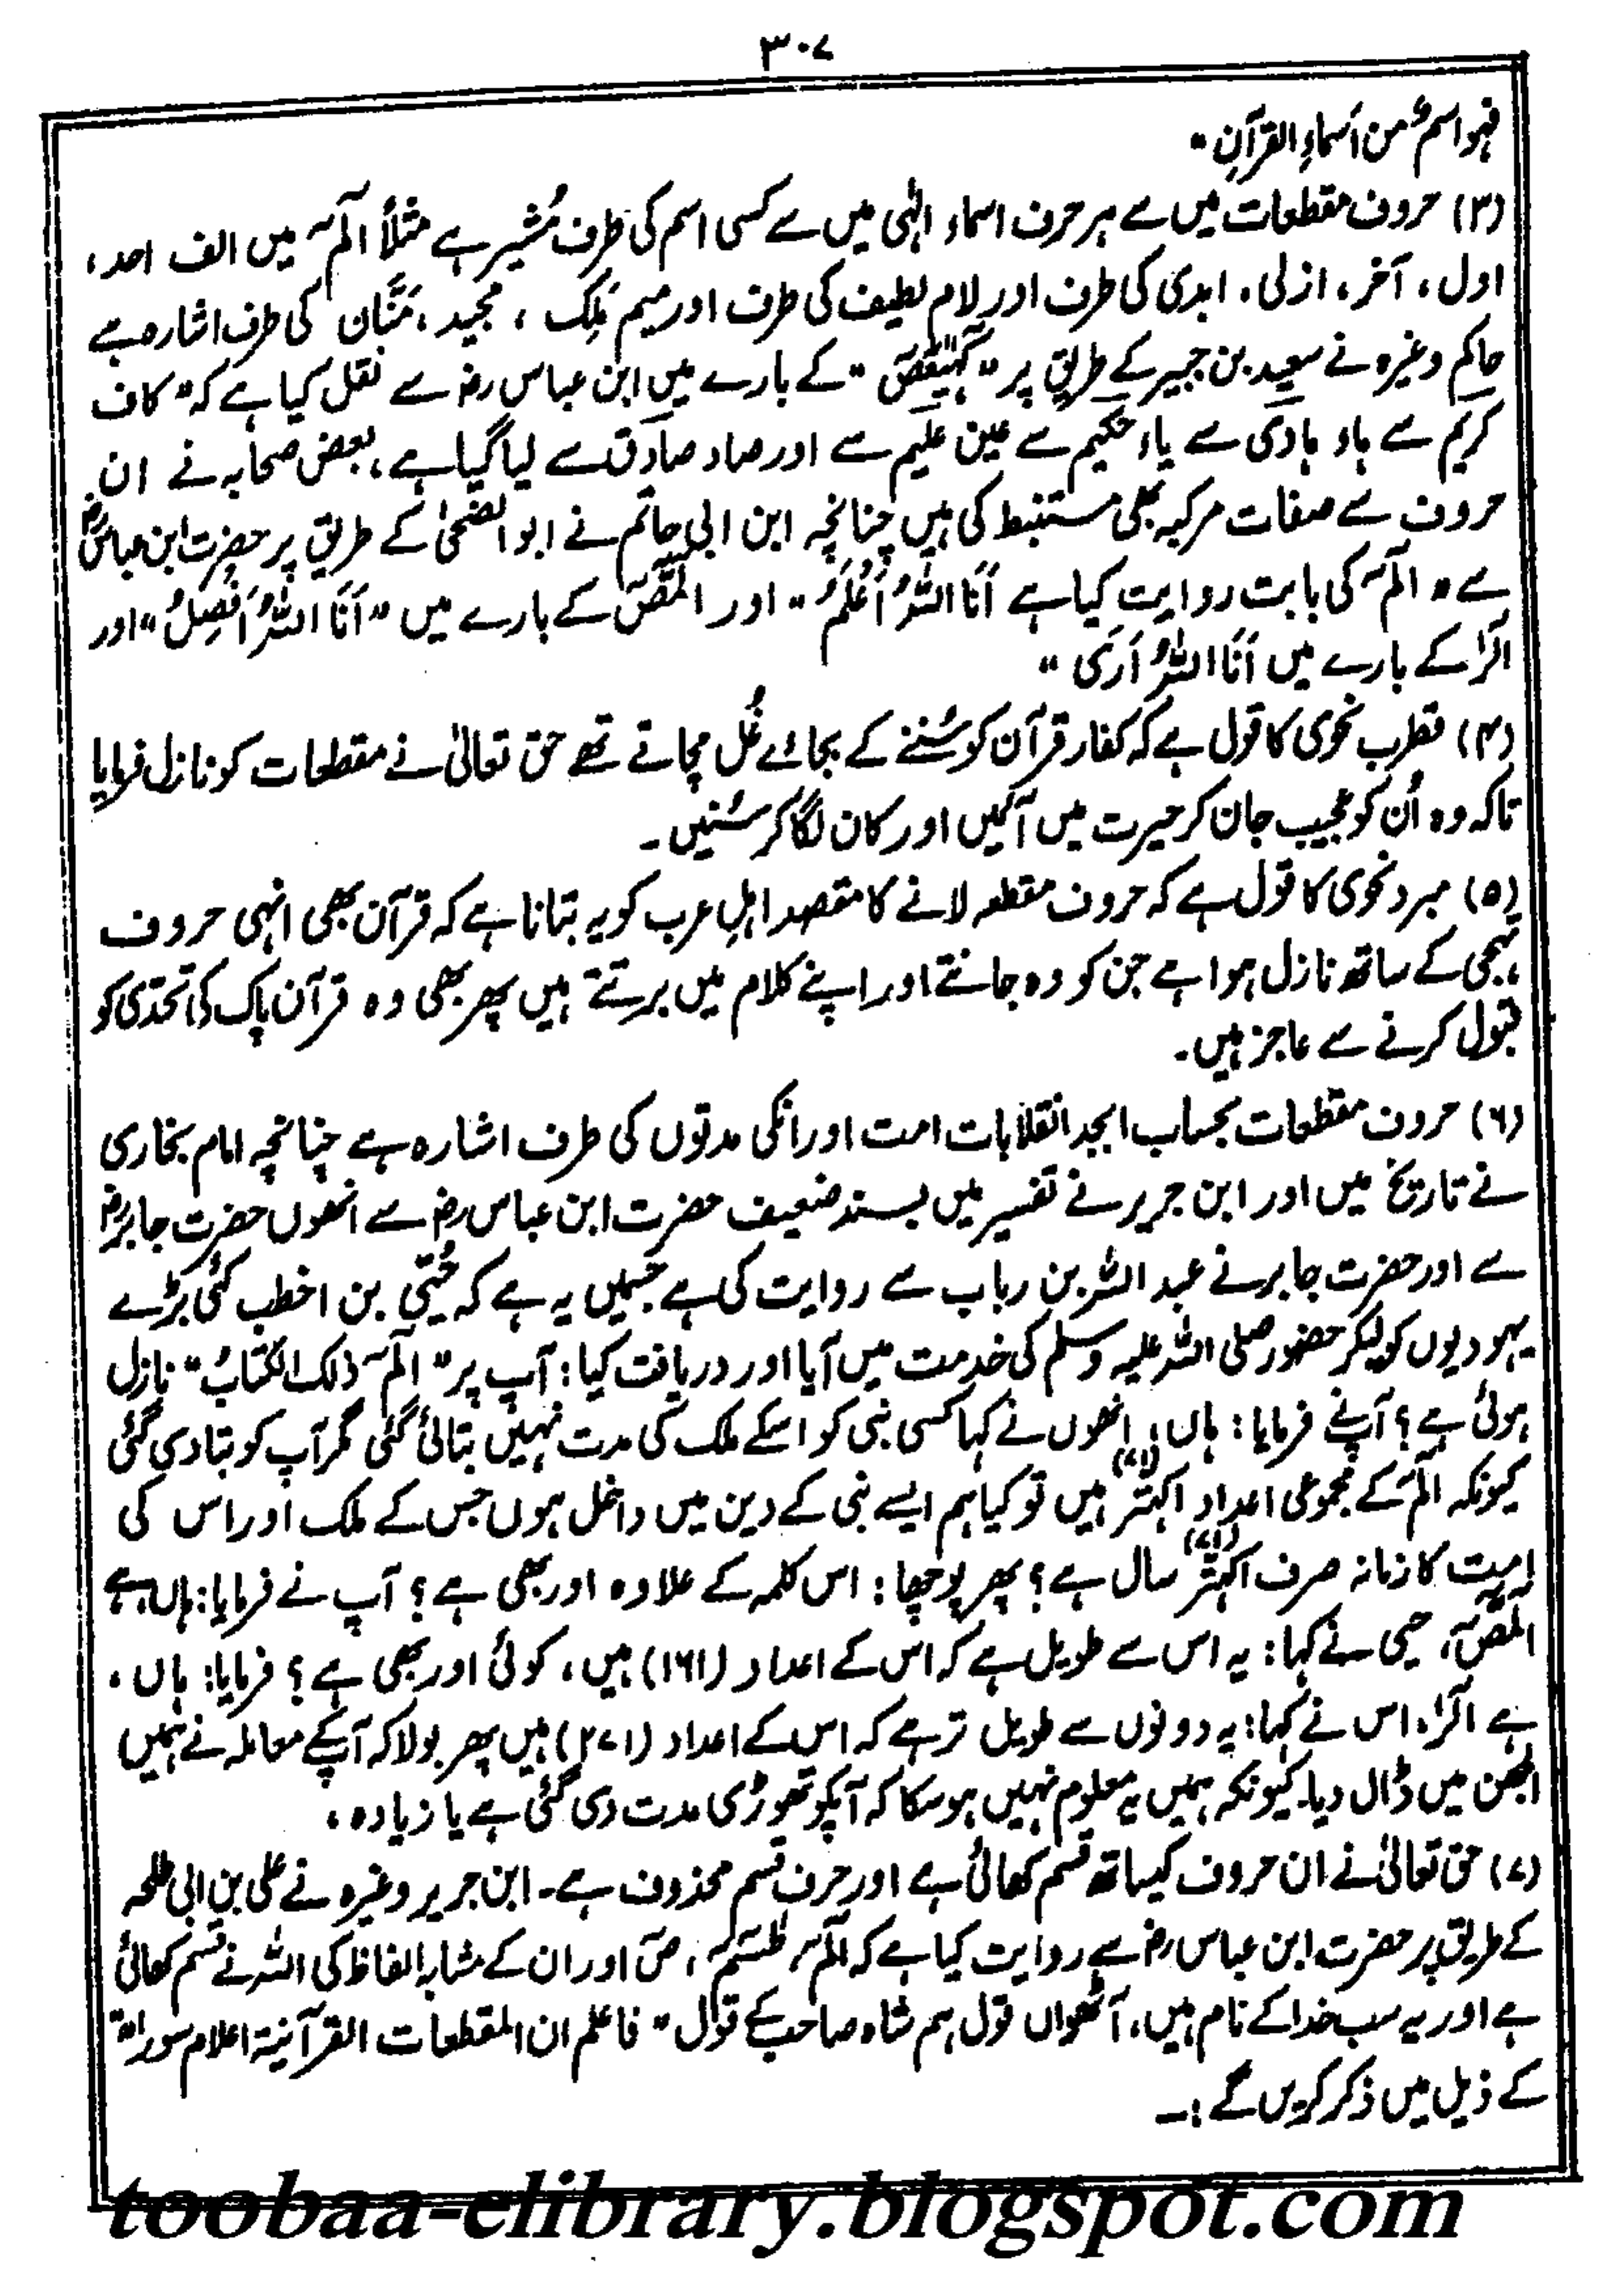 ۳۰۷
فہو اسمٌ من اَسماءِ القرآنِ "
(۳) حروف مقطعات میں سے ہر حرف اسماء الٰہی میں سے کسی اسم کی طرف مُشیر ہے مثلاً الٓمٓ میں الف احد،
اول، آخر، ازلی، ابدی کی طرف اور لام لطیف کی طرف اور میم مَلِک، مجید، مَنَّان کی طرف اشارہ ہے
حاکم وغیرہ نے سعید بن جبیر کے طریق پر " کٓہٰیٰعٓصٓ " کے بارے میں ابن عباس رض سے نقل کیا ہے کہ " کاف
کریم سے ہاء ہادی سے یاء حکیم سے عین علیم سے اور صاد صادق سے لیا گیا ہے، بعض صحابہ نے ان
حروف سے صفات مرکبہ بھی مستنبط کی ہیں چنانچہ ابن ابی حاتم نے ابو الضحیٰ کے طریق پر حضرت ابن عباس رض
سے " الٓمٓ کی بابت روایت کیا ہے اَنَا اللہُ اَعْلَمُ " اور الٓمٓصٓ کے بارے میں " اَنَا اللہُ اَفْصِلُ " اور
الٓرٰ کے بارے میں اَنَا اللہُ اَرَی "
(۴) قطرب نحوی کا قول ہے کہ کفار قرآن کو سُننے کے بجائے غُل مچاتے تھے حق تعالیٰ نے مقطعات کو نازل فرمایا
تاکہ وہ اُن کو عجیب جان کر حیرت میں آئیں اور کان لگا کر سُنیں۔
(۵) مبرد نحوی کا قول ہے کہ حروف مقطعہ لانے کا مقصد اہلِ عرب کو یہ بتانا ہے کہ قرآن بھی انہی حروف
تہجی کے ساتھ نازل ہوا ہے جن کو وہ جانتے اور اپنے کلام میں برتتے ہیں پھر بھی وہ قرآن پاک کی تحدّی کو
قبول کرنے سے عاجز ہیں۔
(۶) حروف مقطعات بحساب ابجد انقلابات امت اور انکی مدتوں کی طرف اشارہ ہے چنانچہ امام بخاری
نے تاریخ میں اور ابن جریر نے تفسیر میں بسند ضعیف حضرت ابن عباس رض سے انھوں حضرت جابر رض
سے اور حضرت جابر نے عبد اللہ بن رباب سے روایت کی ہے جسمیں یہ ہے کہ حُیَیّ بن اخطب کئی بڑے
یہودیوں کو لیکر حضور صلی اللہ علیہ وسلم کی خدمت میں آیا اور دریافت کیا: آپ پر " الٓمٓ ذٰلک الکتابُ " نازل
ہوئی ہے؟ آپنے فرمایا: ہاں، انھوں نے کہا کسی نبی کو اسکے ملک کی مدت نہیں بتائی گئی مگر آپ کو بتا دی گئی
کیونکہ الٓمٓ کے مجموعی اعداد اکہتّر (۷۱) ہیں تو کیا ہم ایسے نبی کے دین میں داخل ہوں جس کے ملک اور اس کی
امت کا زمانہ صرف اکہتّر (۷۱) سال ہے؟ پھر پوچھا: اس کلمہ کے علاوہ اور بھی ہے؟ آپ نے فرمایا: ہاں ہے
الٓمٓصٓ، حیی نے کہا: یہ اس سے طویل ہے کہ اس کے اعداد (۱۶۱) ہیں، کوئی اور بھی ہے؟ فرمایا: ہاں،
ہے الٓرٰ، اس نے کہا: یہ دونوں سے طویل تر ہے کہ اس کے اعداد (۲۷۱) ہیں پھر بولا کہ آپکے معاملہ نے ہمیں
الجھن میں ڈال دیا۔ کیونکہ ہمیں یہ معلوم نہیں ہو سکا کہ آپکو تھوڑی مدت دی گئی ہے یا زیادہ،
(۷) حق تعالیٰ نے ان حروف کیساتھ قسم کھائی ہے اور حرف قسم محذوف ہے۔ ابن جریر وغیرہ نے علی بن ابی طلحہ
کے طریق پر حضرت ابن عباس رض سے روایت کیا ہے کہ الٓمٓ، طٰسٓمٓ، صٓ اور ان کے مشابہ الفاظ کی اللہ نے قسم کھائی
ہے اور یہ سب خدا کے نام ہیں، آٹھواں قول ہم شاہ صاحب کے قول " فاعلم ان المقطعات القرآنیۃ اعلام سور الخ"
کے ذیل میں ذکر کریں گے :۔
toobaa-elibrary.blogspot.com